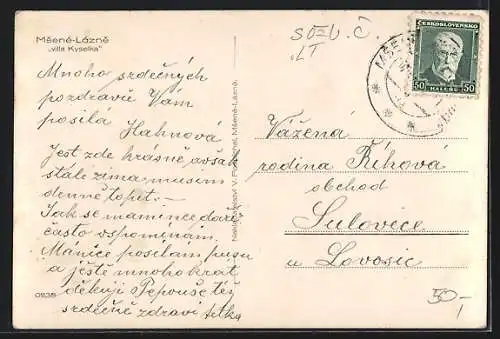 Mšené-Lázně
„villa Kyselka"
Mnoho srdečných
pozdravů Vám
posílá Hahnová
Jest zde krásně avšak
stále zima, musím
denně topit. –
Jak se mamince daří
často vzpomínám.
Mánice posílám pusu
a ještě mnohokrát
děkuji Pepouše též
srdečně zdraví tetka
0838
Mšené-Lázně.
SOZV. Č.
LT
ČESKOSLOVENSKO
50 50
HALÉŘŮ
MŠENÉ
Vážená
rodina Říhová
obchod
Sulovice
u Lovosic
50,-